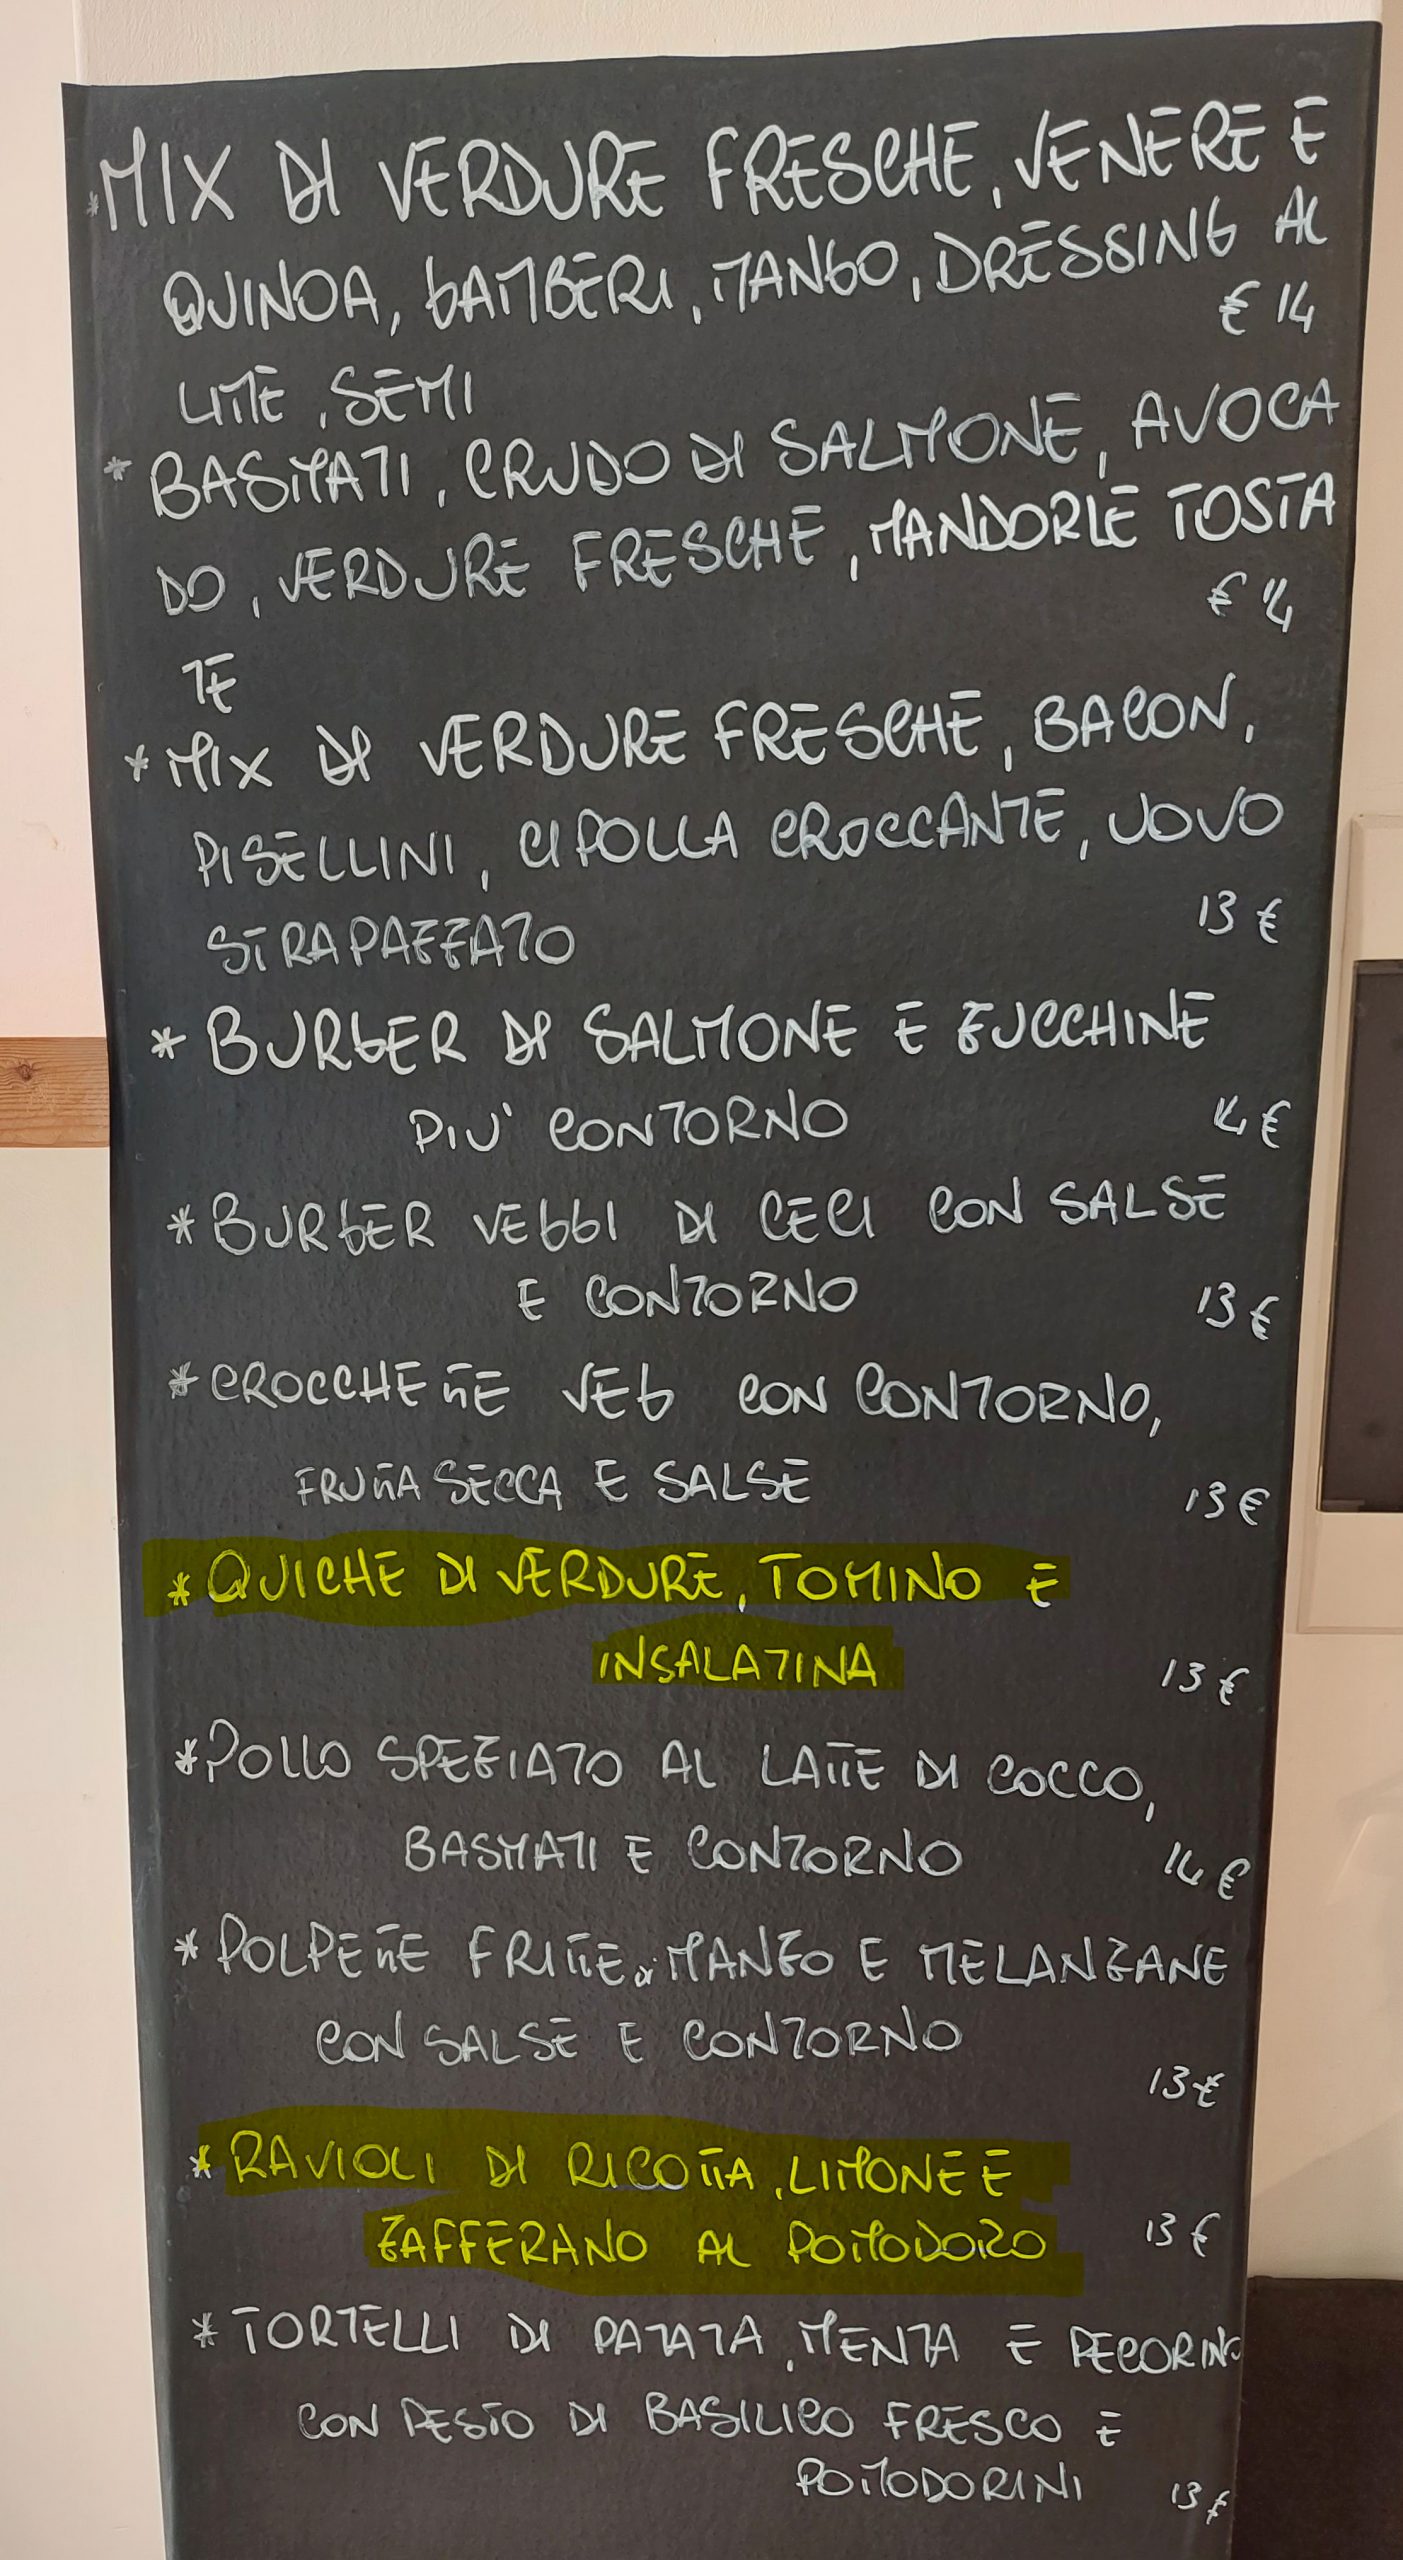 *MIX DI VERDURE FRESCHE, VENERE E
QUINOA, GAMBERI, MANGO, DRESSING AL
€ 14
LIME, SEMI
* BASMATI, CRUDO DI SALMONE, AVOCA
DO, VERDURE FRESCHE, MANDORLE TOSTA
€ 14
TE
* MIX DI VERDURE FRESCHE, BACON,
PISELLINI, CIPOLLA CROCCANTE, UOVO
STRAPAZZATO 13 €
* BURGER DI SALMONE E ZUCCHINE
PIU' CONTORNO 14 €
* BURGER VEGGI DI CECI CON SALSE
E CONTORNO 13 €
* CROCCHETTE VEG CON CONTORNO,
FRUTTA SECCA E SALSE 13 €
* QUICHE DI VERDURE, TOMINO E
INSALATINA 13 €
* POLLO SPEZIATO AL LATTE DI COCCO,
BASMATI E CONTORNO 14 €
* POLPETTE FRITTE di MANZO E MELANZANE
CON SALSE E CONTORNO
13 €
* RAVIOLI DI RICOTTA, LIMONE E
ZAFFERANO AL POMODORO 13 €
* TORTELLI DI PATATA, MENTA E PECORINO
CON PESTO DI BASILICO FRESCO E
POMODORINI 13 €